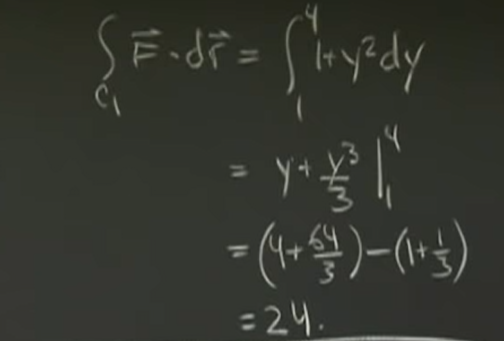 ∫_{C₁} F⃗ · dr⃗ = ∫₁⁴ 1+y² dy
= y + y³/3 |₁⁴
= (4 + 64/3) − (1 + 1/3)
= 24.